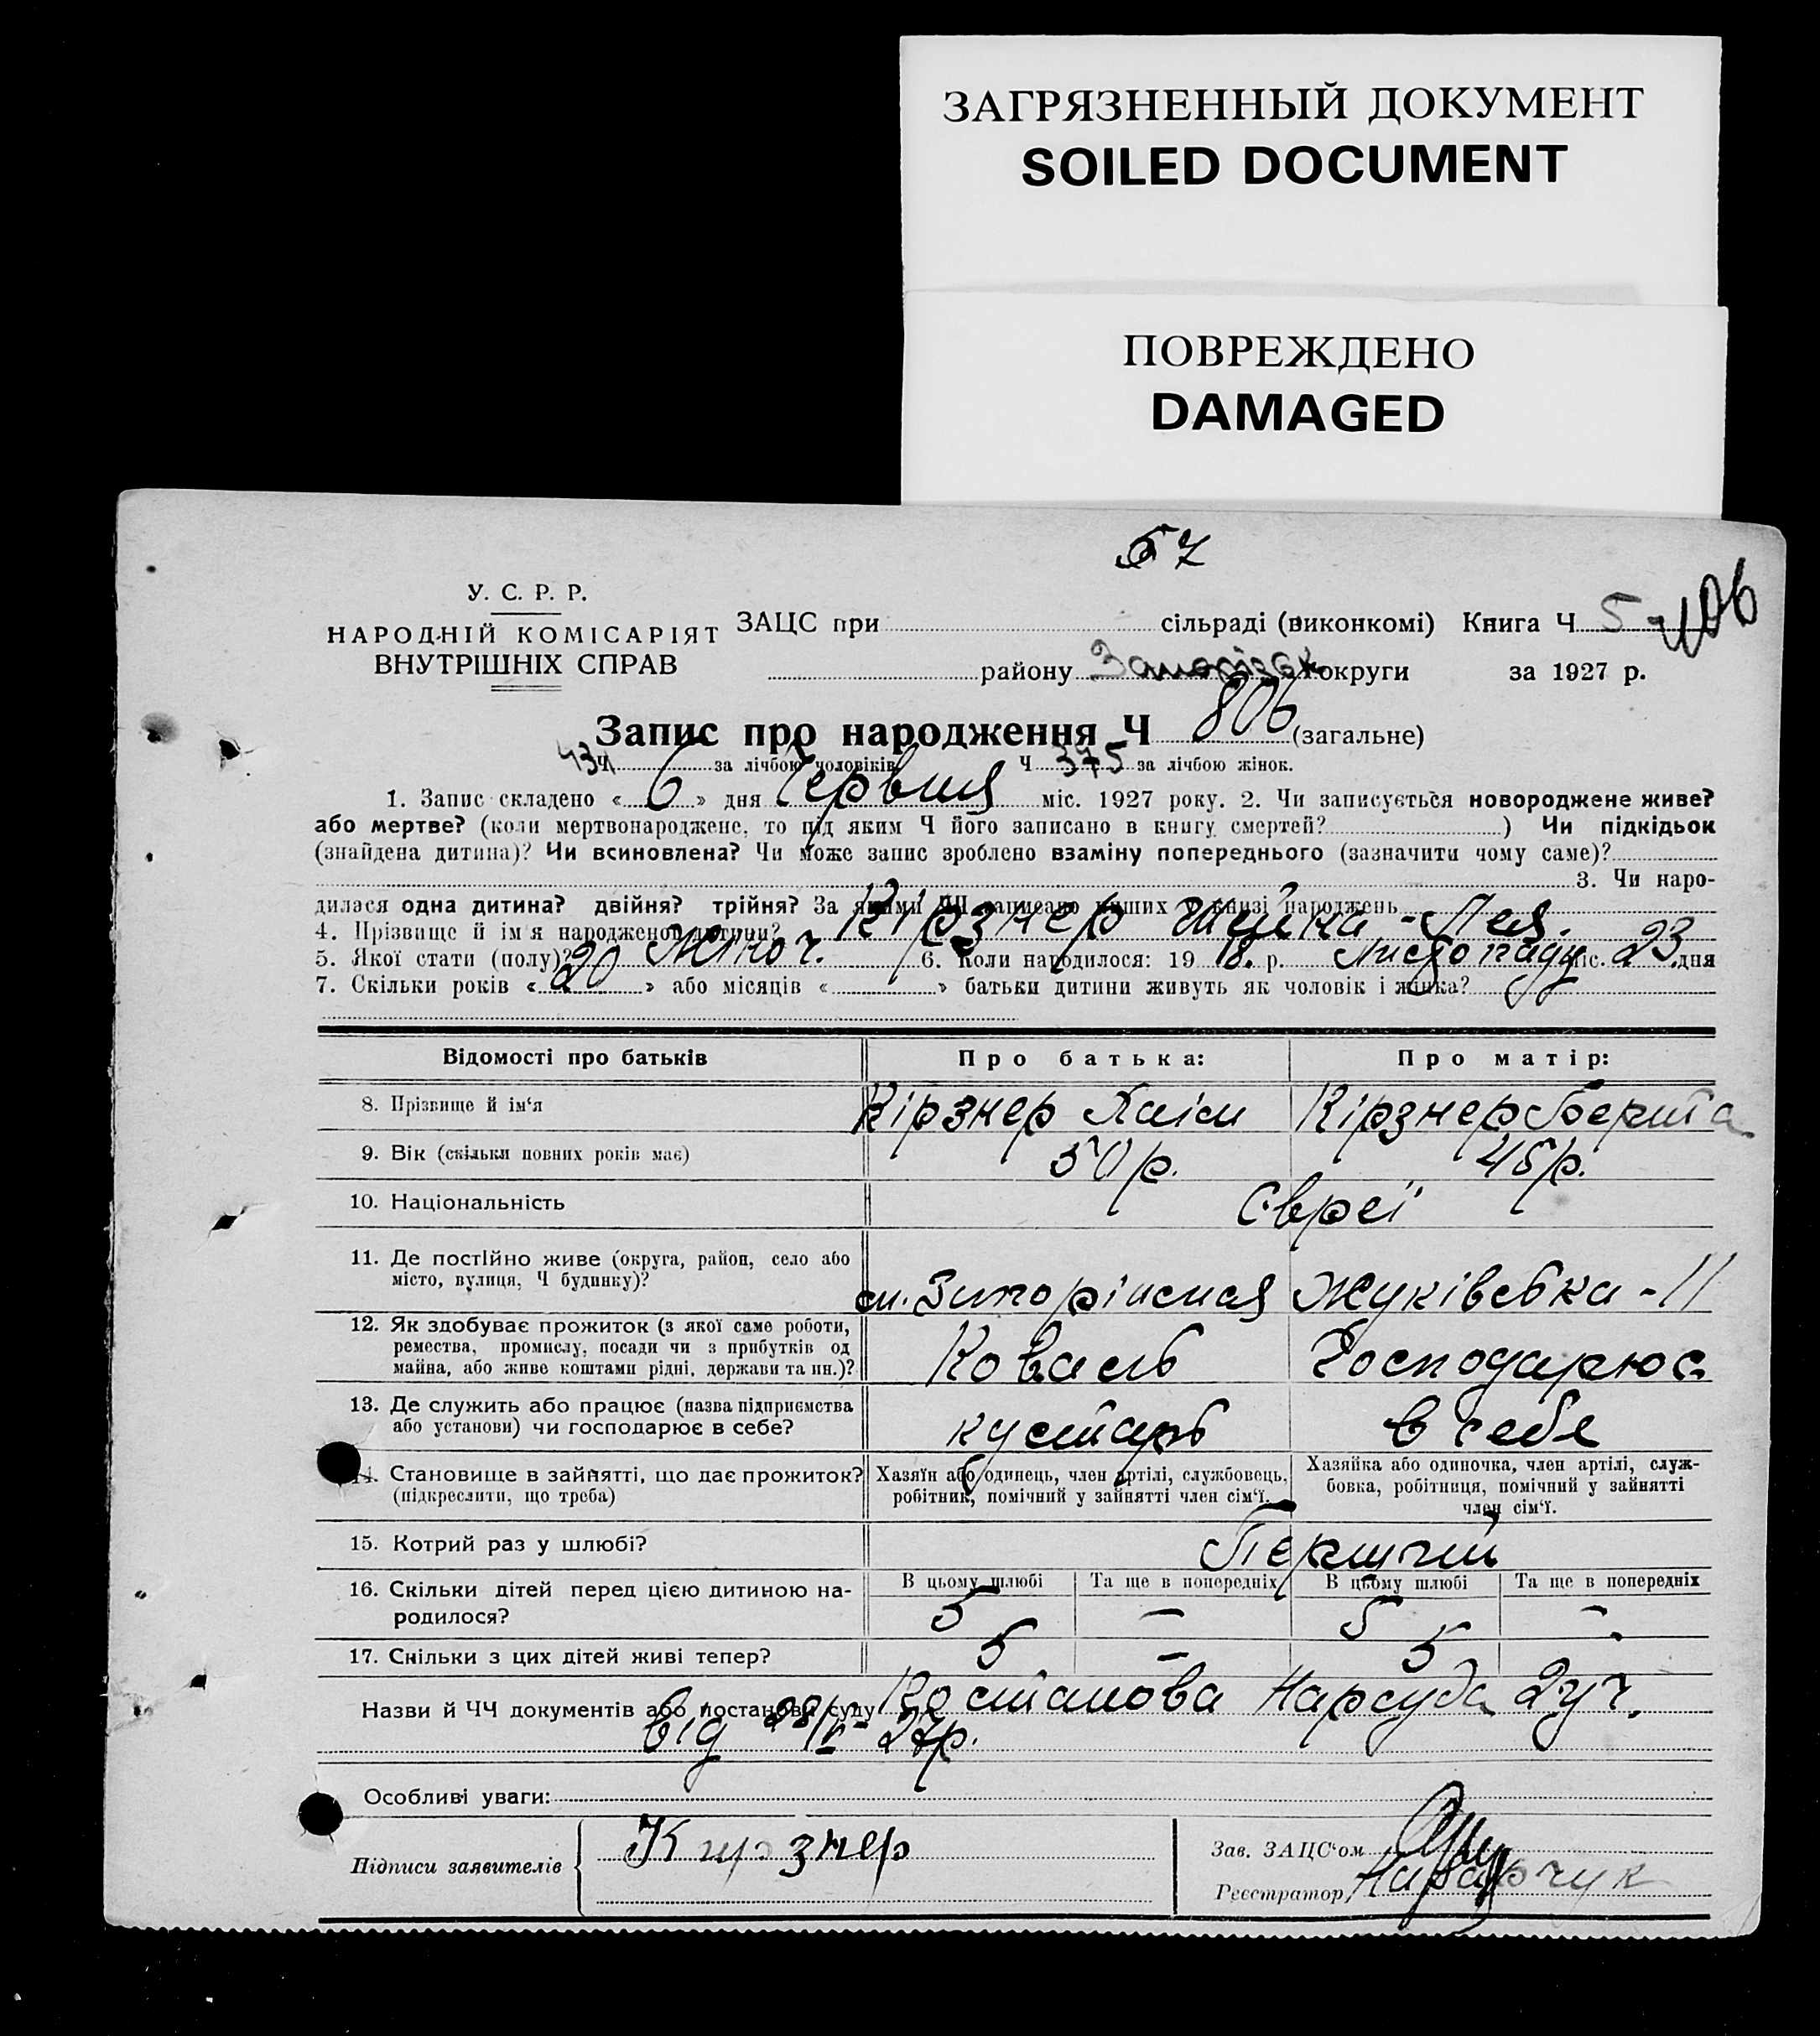 ЗАГРЯЗНЕННЫЙ ДОКУМЕНТ
SOILED DOCUMENT
ПОВРЕЖДЕНО
DAMAGED
57
У. С. Р. Р.
НАРОДНІЙ КОМІСАРІЯТ
ВНУТРІШНІХ СПРАВ
ЗАЦС при сільраді (виконкомі) Книга Ч 5
району округи за 1927 р.
Запис про народження Ч 806 (загальне)
431 Ч за лічбою чоловіків Ч 375 за лічбою жінок.
1. Запис складено « 6 » дня Червня міс. 1927 року. 2. Чи записується новороджене живе?
або мертве? (коли мертвонароджене, то під яким Ч його записано в книгу смертей? ) Чи підкідьок
(знайдена дитина)? Чи всиновлена? Чи може запис зроблено взаміну попереднього (зазначити чому саме)?
3. Чи наро-
дилася одна дитина? двійня? трійня? За якими ЧЧ записано инших у книзі народжень
4. Прізвище й ім'я народженої дитини? Кірзнер -Лея.
5. Якої стати (полу)? Жіноч. 6. Коли народилося: 19 18. р. Листопаду міс. 23 дня
7. Скільки років « 20 » або місяців « » батьки дитини живуть як чоловік і жінка?
Відомості про батьків Про батька: Про матір:
8. Прізвище й ім'я Кірзнер Хаім Кірзнер Берта
9. Вік (скільки повних років має) 50 р. 45 р.
10. Національність Євреї
11. Де постійно живе (округа, район, село або
місто, вулиця, Ч будинку)? Жуківська - 11
12. Як здобуває прожиток (з якої саме роботи,
ремества, промислу, посади чи з прибутків од
майна, або живе коштами рідні, держави та ин.)? Коваль Господарює
13. Де служить або працює (назва підприємства
або установи) чи господарює в себе? кустарь в себе
14. Становище в зайнятті, що дає прожиток?
(підкреслити, що треба)
Хазяїн або одинець, член артілі, службовець,
робітник, помічний у зайнятті член сім'ї.
Хазяйка або одиночка, член артілі, служ-
бовка, робітниця, помічний у зайнятті
член сім'ї.
15. Котрий раз у шлюбі? Перший
16. Скільки дітей перед цією дитиною на-
родилося?
В цьому шлюбі Та ще в попередніх В цьому шлюбі Та ще в попередніх
5 — 5 -
17. Скільки з цих дітей живі тепер? 5 — 5 -
Назви й ЧЧ документів або постанови суду Постанова Нарсуда 2 уч.
від 28/V- 27р.
Особливі уваги:
Підписи заявителів Кирзнер
Зав. ЗАЦС'ом
Реєстратор